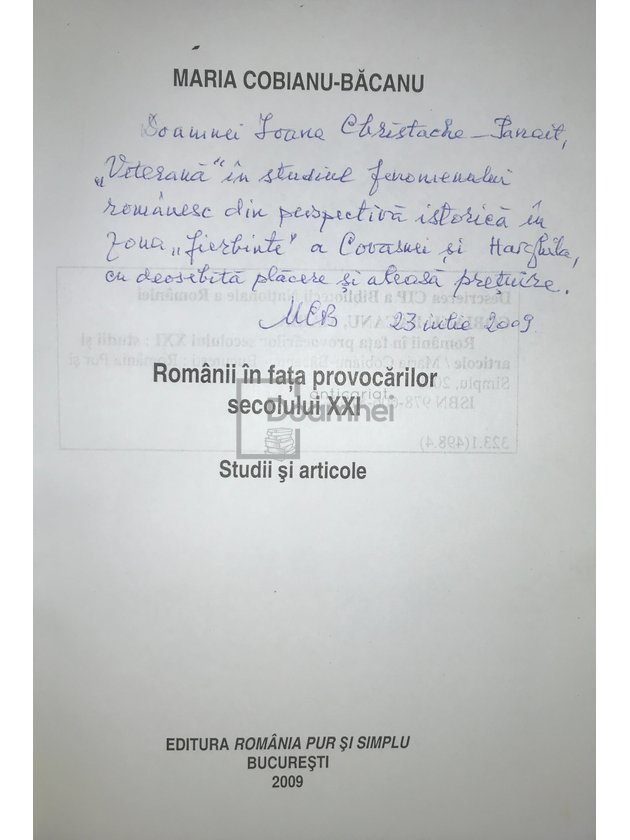 MARIA COBIANU-BĂCANU
Doamnei Ioana Christache-Panait,
„Veterană" în studiul fenomenului
românesc din perspectivă istorică în
zona „fierbinte" a Covasnei și Harghita,
cu deosebită plăcere și aleasă prețuire.
MCB 23 iulie 2009
Descrierea CIP a Bibliotecii Naționale a României
Românii în fața provocărilor secolului XXI : studii și
articole / Maria Cobianu-Băcanu. - București : România Pur și
Simplu, 20
ISBN 978-
323.1(498.4)
Românii în fața provocărilor
secolului XXI
anticariat
Doamnei
Studii și articole
EDITURA ROMÂNIA PUR ȘI SIMPLU
BUCUREȘTI
2009